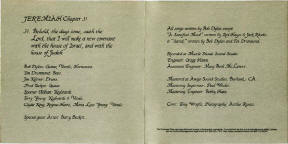 JEREMIAH Chapter 31
31. Behold, the days come, saith the
Lord, that I will make a new covenant
with the house of Israel, and with the
house of Judah
Bob Dylan: Guitar, Vocals, Harmonica
Tim Drummond: Bass
Jim Keltner: Drums
Fred Tackett: Guitar
Spooner Oldham: Keyboards
Terry Young: Keyboards & Vocals
Clydie King, Regina Havis, Mona Lisa Young: Vocals
Special guest Artist: Barry Beckett
All songs written by Bob Dylan except
"A Satisfied Mind" written by Red Hayes & Jack Rhodes
& "Saved," written by Bob Dylan and Tim Drummond.
Recorded at Muscle Shoals Sound Studio
Engineer: Gregg Hamm
Assistant Engineer: Mary Beth McLemore
Mastered at Amigo Sound Studios, Burbank, CA
Mastering Supervisor: Paul Wexler
Mastering Engineer: Bobby Hata
Cover: Tony Wright, Photography: Arthur Rosato